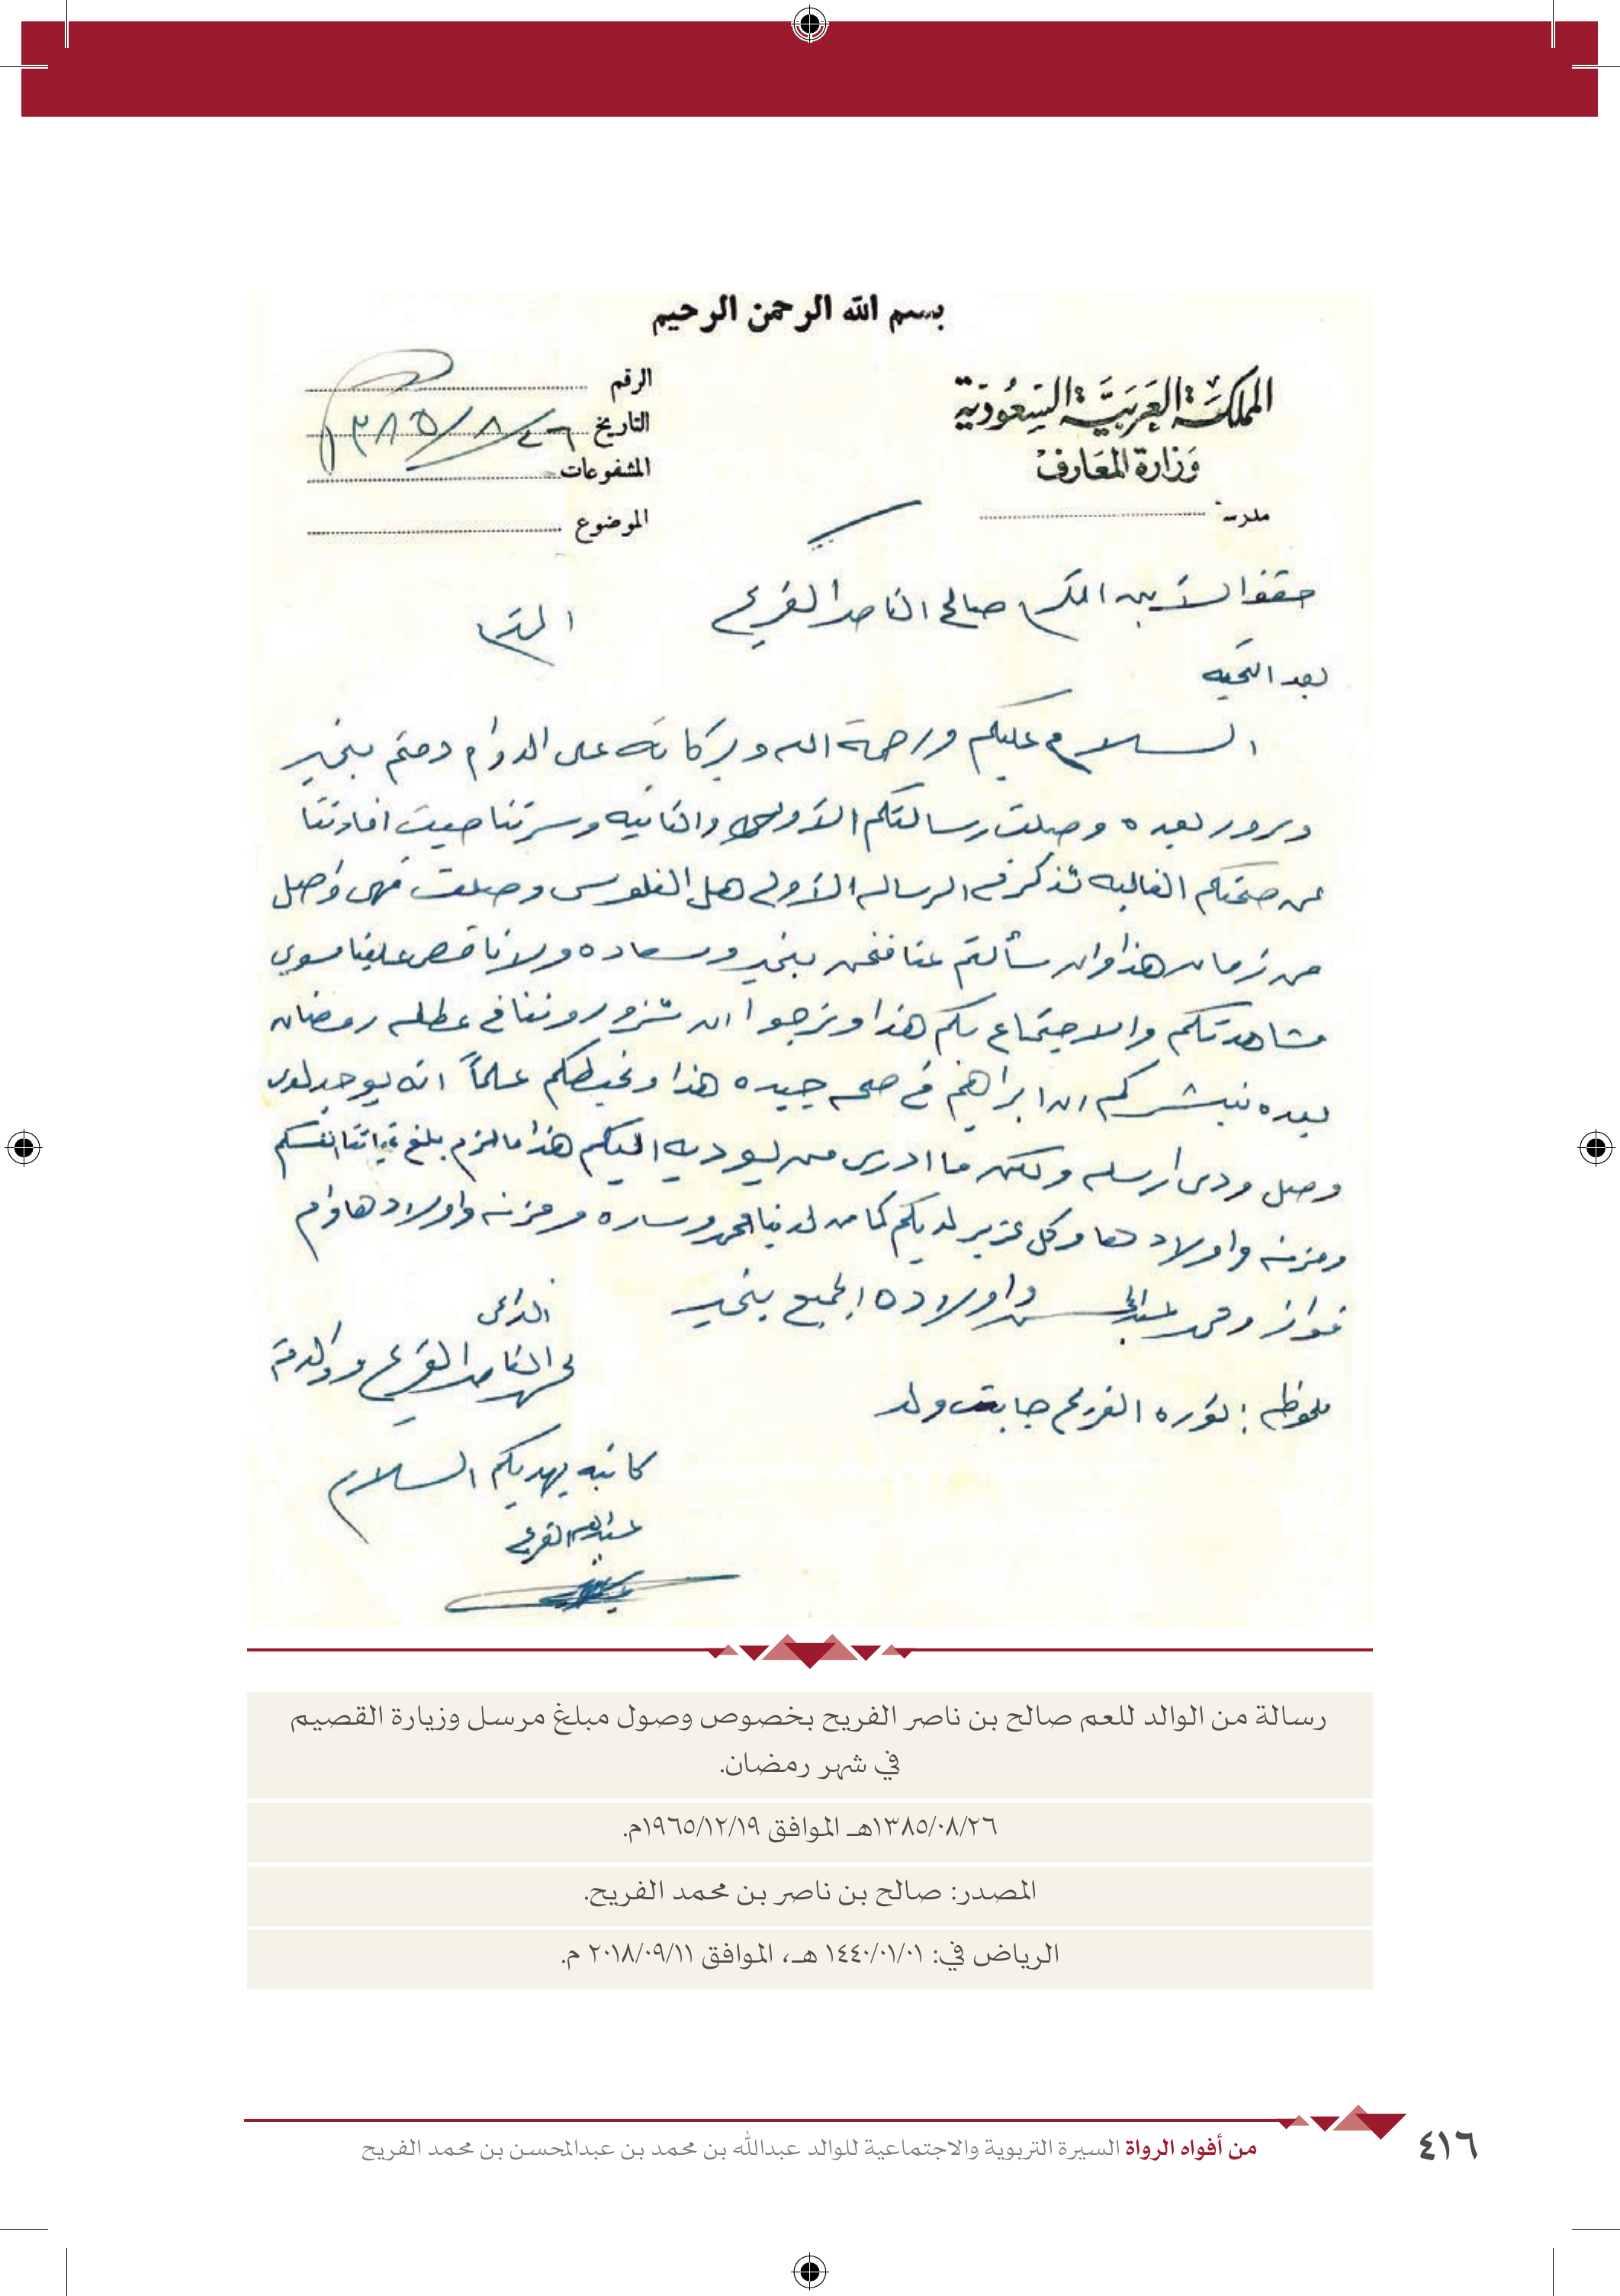 بسم الله الرحمن الرحيم
المملكة العربية السعودية
وزارة المعارف
مدرسة
الرقم
التاريخ ٢٦/٨/١٣٨٥
المشفوعات
الموضوع
حضرة المكرم صالح الناصر الفريح المحترم
بعد التحيه
السلام عليكم ورحمة الله وبركاته على الدوام دمتم بخير
وسرور بعده وصلت رسالتكم الأولى والثانيه وسرتنا حيث افادتنا
عن صحتكم الغاليه تذكر في الرساله الأولى هل الفلوس وصلت فهي واصل
من زمان هذا وان سألتم عنا فنحن بخير وسعاده ولا ناقص علينا سوى
مشاهدتكم والاجتماع بكم هذا ونرجوا ان تزورونا في عطله رمضان
بعده نبشركم ان ابراهيم في صحه جيده هذا ونحيطكم علماً انه يوجد لدى
ودى ارسله ولكن ما ادرى من يوديه اليكم هذا مالزم بلغ تحياتنا انفسكم
ومزنه واولادها وكل عزيز لديكم كما من لدينا محمد وساره ومزنه واولادها وام
فواز ومحمد عبدالمحسن واولاده الجميع بخير
الداعى
الناصر الفريح ووالدته
ملحوظه : نوره الفريح جابت ولد
كاتبه يهديكم السلام
عبدالله الفريح
رسالة من الوالد للعم صالح بن ناصر الفريح بخصوص وصول مبلغ مرسل وزيارة القصيم
في شهر رمضان.
١٣٨٥/٠٨/٢٦هـ الموافق ١٩٦٥/١٢/١٩م.
المصدر: صالح بن ناصر بن محمد الفريح.
الرياض في: ١٤٤٠/٠١/٠١ هـ، الموافق ٢٠١٨/٠٩/١١ م.
من أفواه الرواة السيرة التربوية والاجتماعية للوالد عبدالله بن محمد بن عبدالمحسن بن محمد الفريح
٤١٦